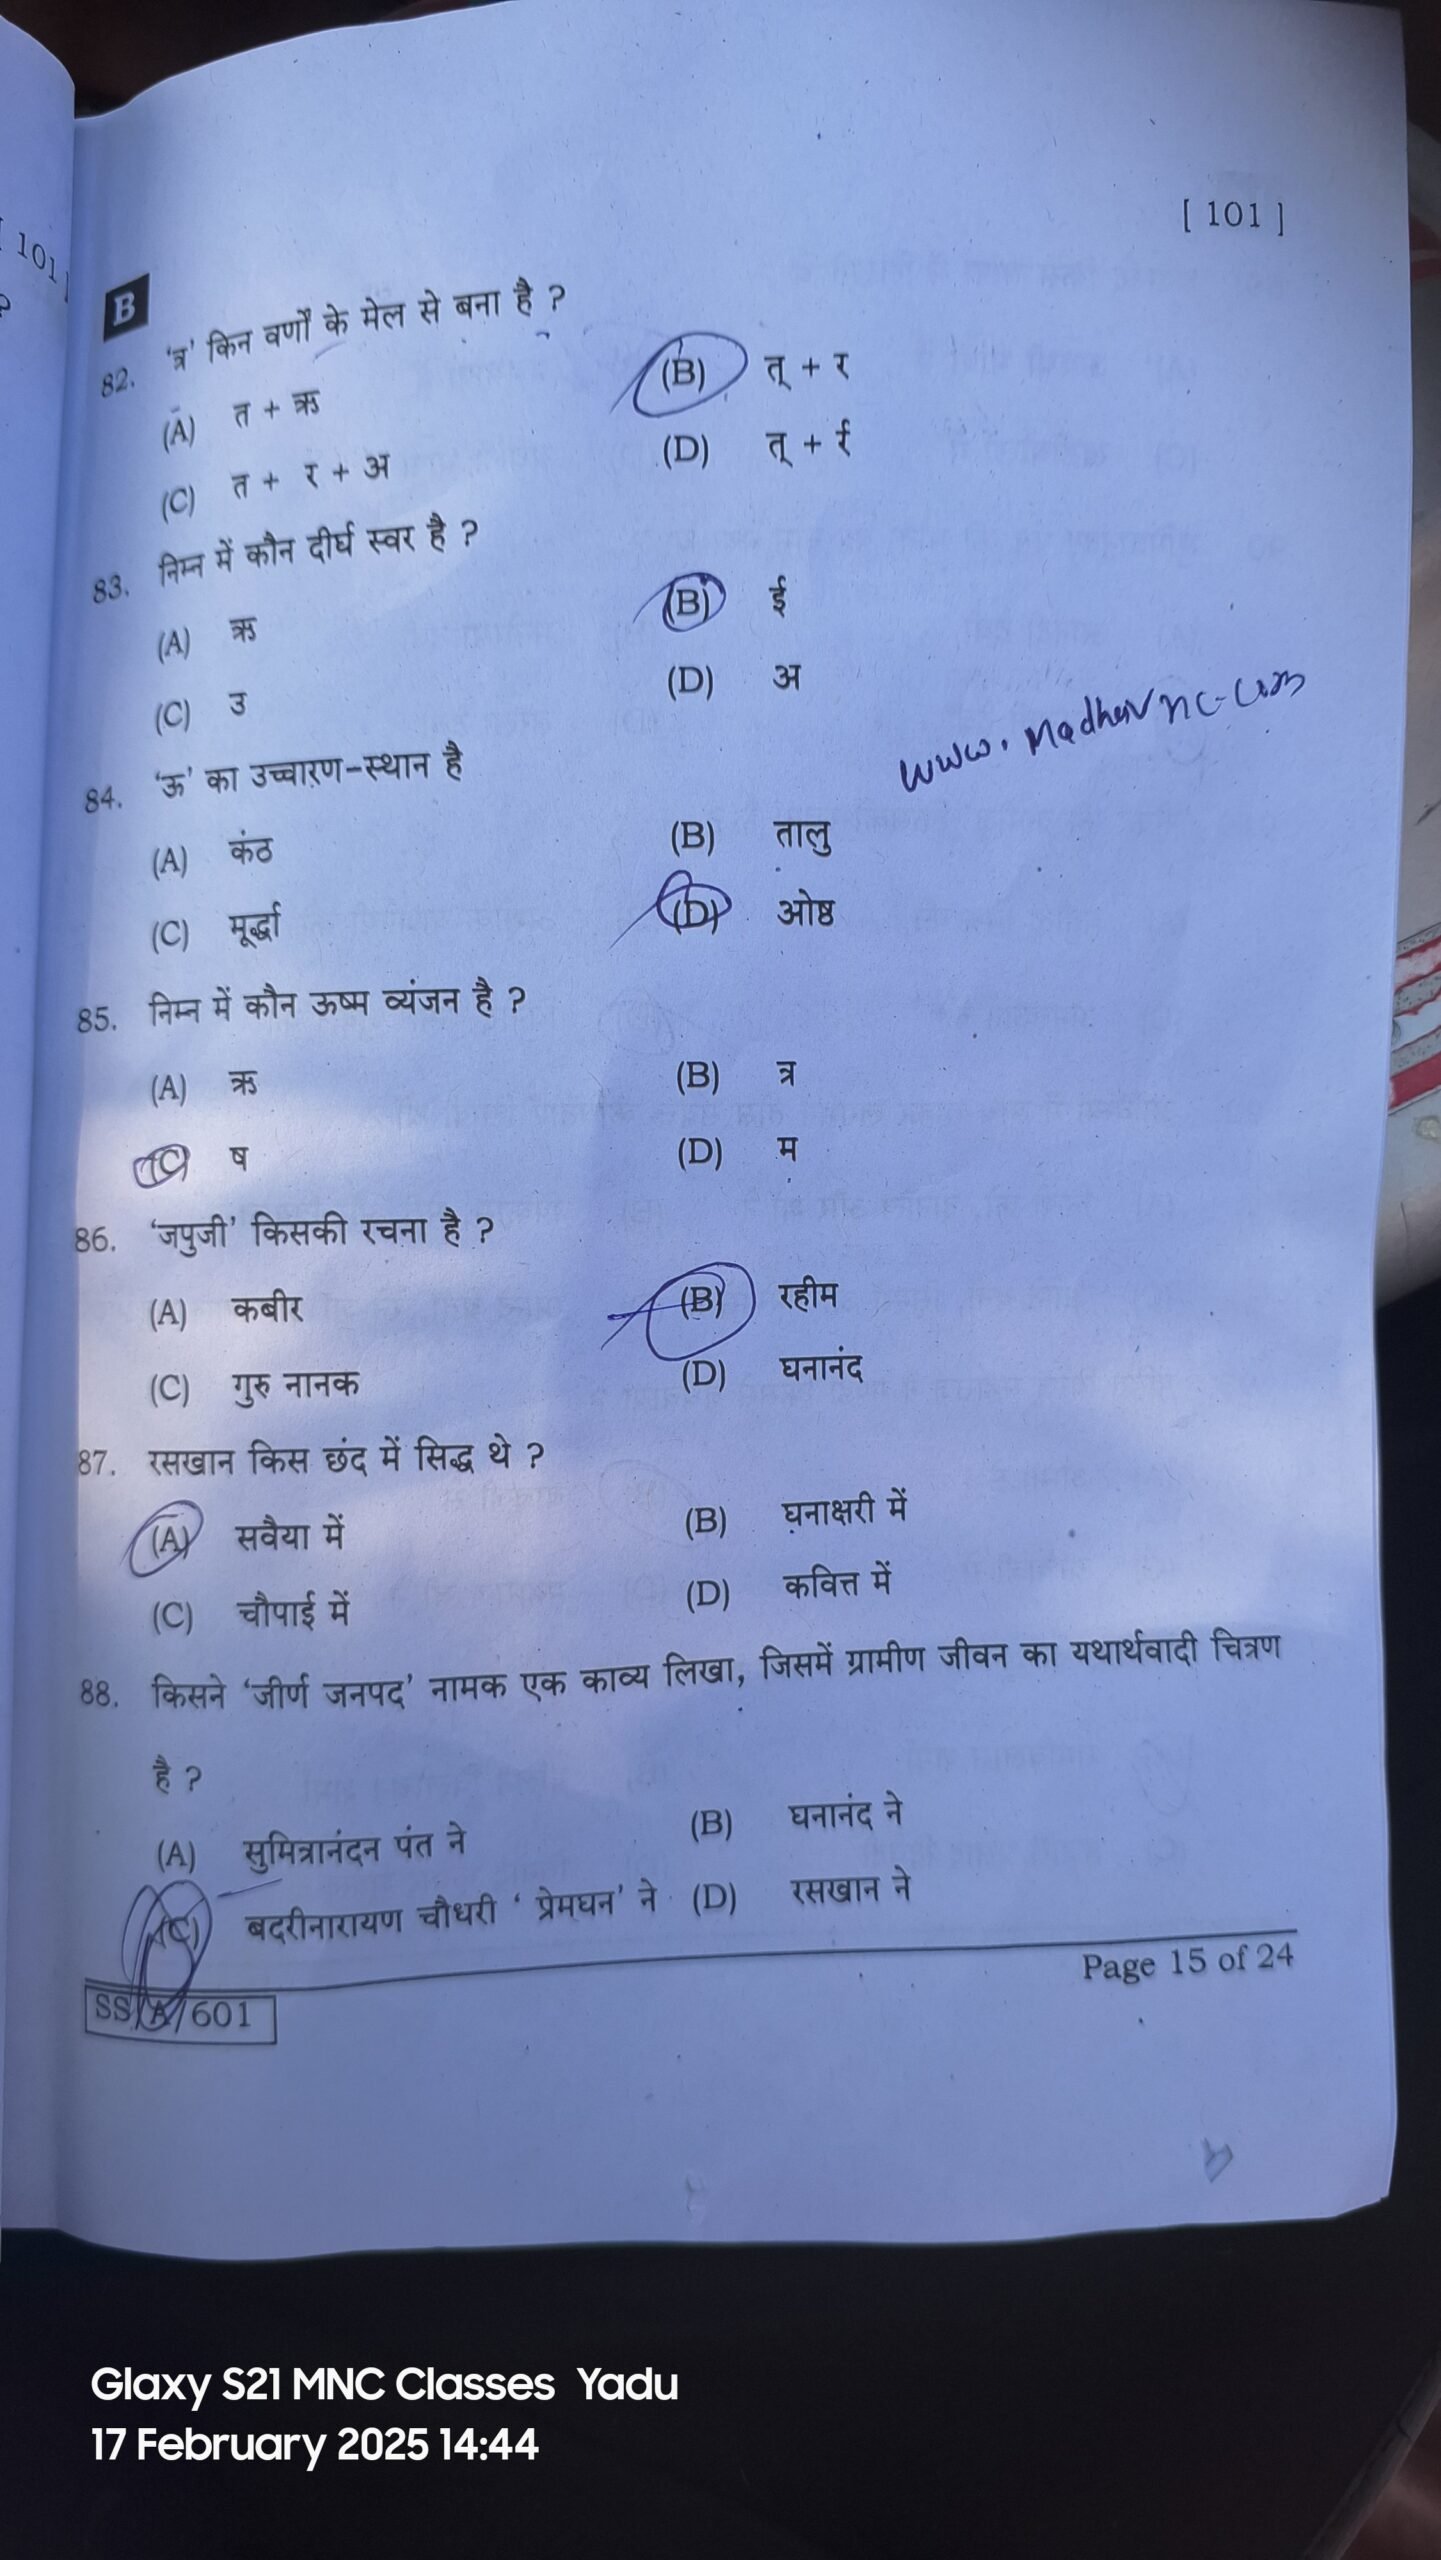 [ 101 ]
[ 101 ]
B
82. 'त्र' किन वर्णों के मेल से बना है ?
(A) त + ऋ (B) त् + र
(C) त + र + अ (D) त् + र्र
83. निम्न में कौन दीर्घ स्वर है ?
(A) ऋ (B) ई
(C) उ (D) अ
www.Madhavnc.com
84. 'ऊ' का उच्चारण-स्थान है
(A) कंठ (B) तालु
(C) मूर्द्धा (D) ओष्ठ
85. निम्न में कौन ऊष्म व्यंजन है ?
(A) ऋ (B) त्र
(C) ष (D) म
86. 'जपुजी' किसकी रचना है ?
(A) कबीर (B) रहीम
(C) गुरु नानक (D) घनानंद
87. रसखान किस छंद में सिद्ध थे ?
(A) सवैया में (B) घनाक्षरी में
(C) चौपाई में (D) कवित्त में
88. किसने 'जीर्ण जनपद' नामक एक काव्य लिखा, जिसमें ग्रामीण जीवन का यथार्थवादी चित्रण
है ?
(A) सुमित्रानंदन पंत ने (B) घनानंद ने
(C) बदरीनारायण चौधरी ' प्रेमघन' ने (D) रसखान ने
SS/A/601
Page 15 of 24
Glaxy S21 MNC Classes Yadu
17 February 2025 14:44